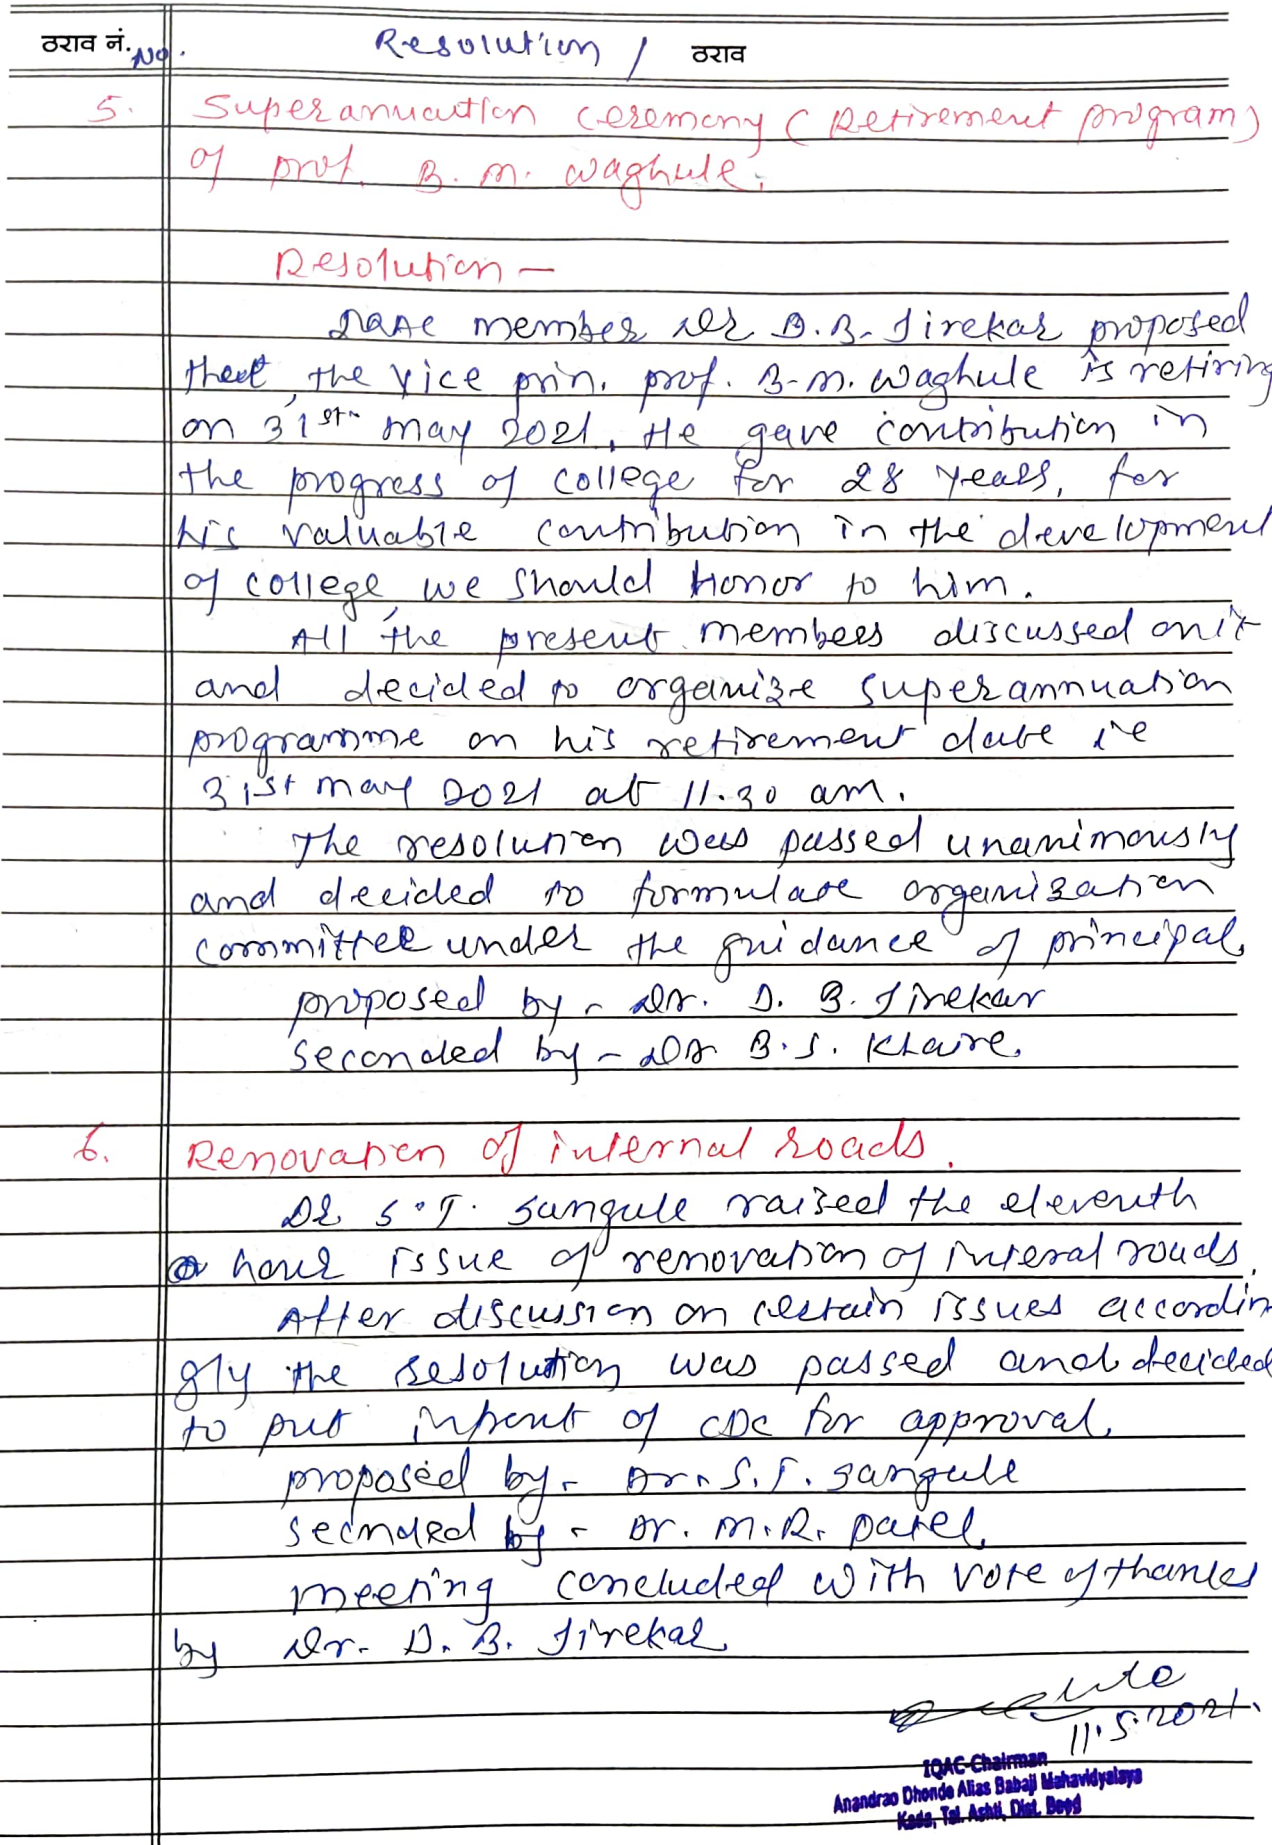 ठराव नं. No. Resolution / ठराव
5. Superannuation ceremony (Retirement program)
of prof. B. M. Waghule.
Resolution –
IQAC member Dr D.B. Jirekar proposed
that, the vice prin. prof. B.M. Waghule is retiring
on 31st May 2021. He gave contribution in
the progress of college for 28 years, for
his valuable contribution in the development
of college, we should honor to him.
All the present members discussed on it
and decided to organize superannuation
programme on his retirement date i.e
31st May 2021 at 11.30 am.
The resolution was passed unanimously
and decided to formulate organization
committee under the guidance of principal.
proposed by - Dr. D. B. Jirekar
Seconded by - Dr. B. S. Khaire.
6. Renovation of internal roads.
Dr S.T. Sangule raised the eleventh
hour issue of renovation of interal roads.
After discussion on certain issues accordin
gly the resolution was passed and decided
to put infront of CDC for approval.
proposed by - Dr. S.T. Sangule
secnded by - Dr. M.R. Patel.
meeting concluded with vote of thanks
by Dr. D. B. Jirekar
11.5.2021.
IQAC-Chairman
Anandrao Dhonde Alias Babaji Mahavidyalaya
Kada, Tal. Ashti, Dist. Beed